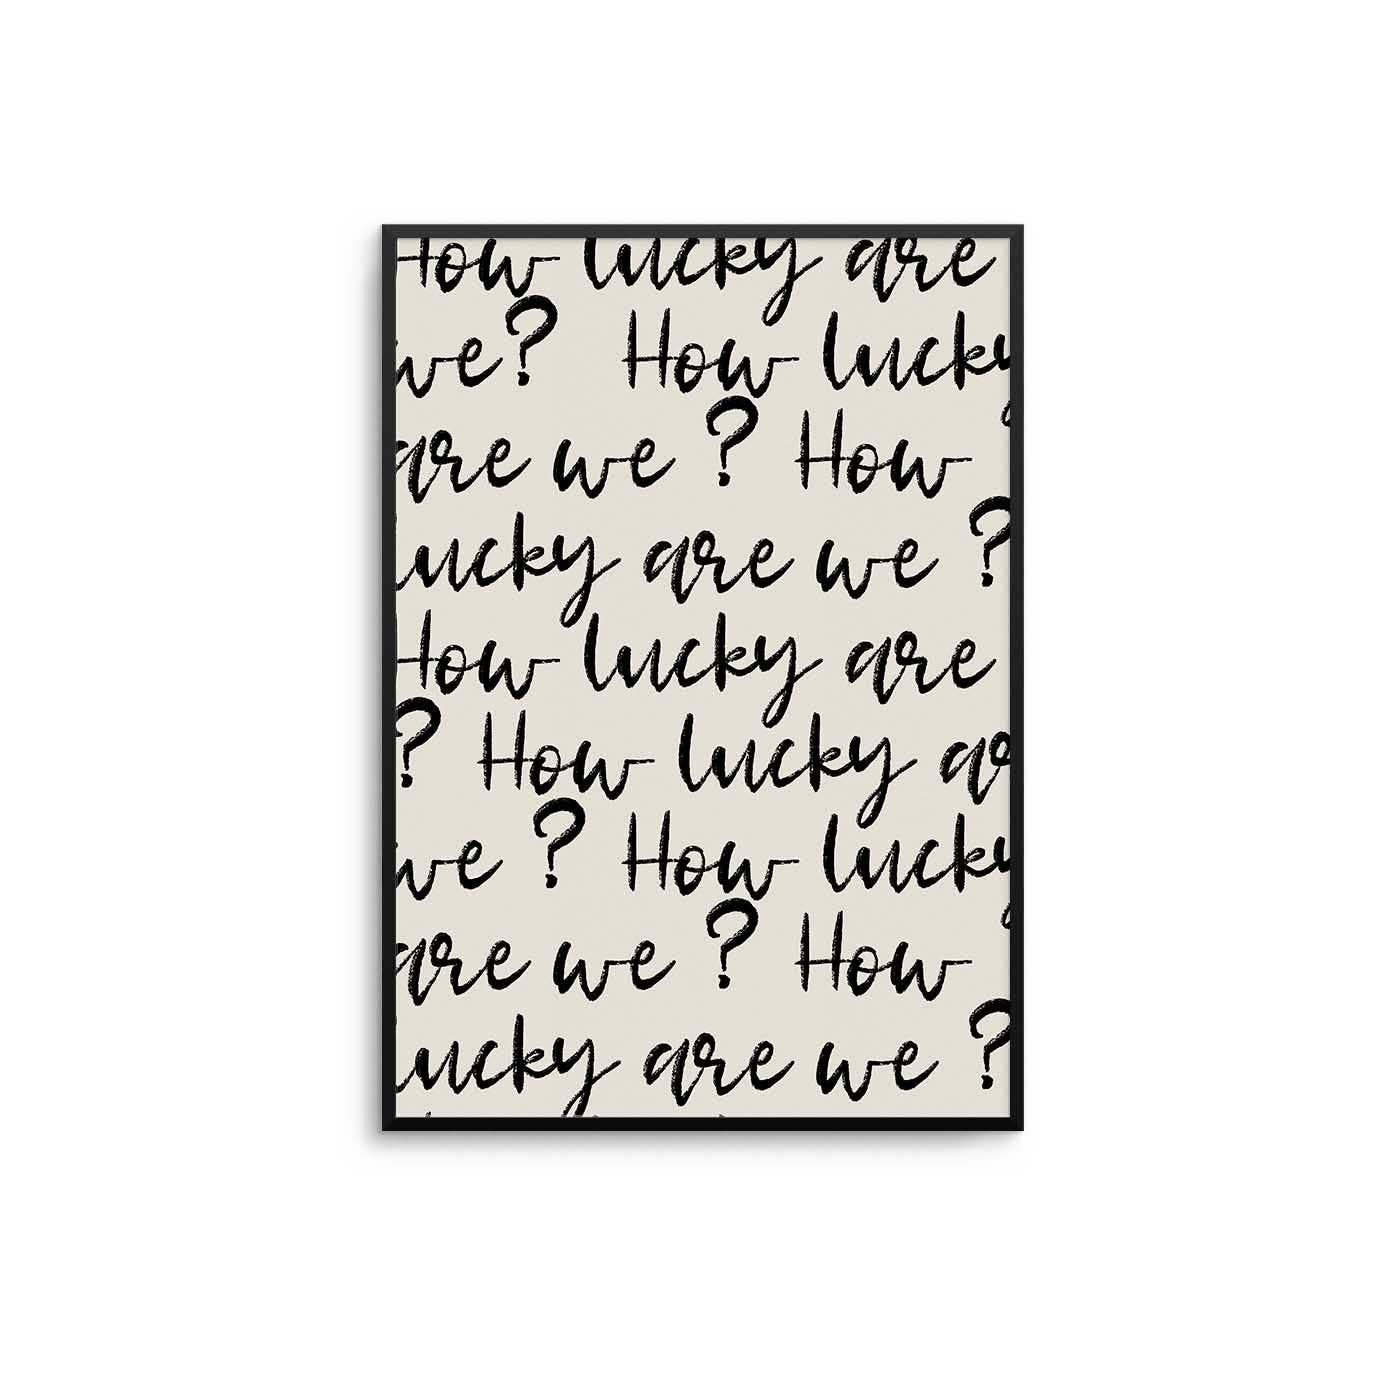 How lucky are
we? How lucky
are we ? How
lucky are we ?
How lucky are
? How lucky are
we ? How lucky
are we ? How
lucky are we ?